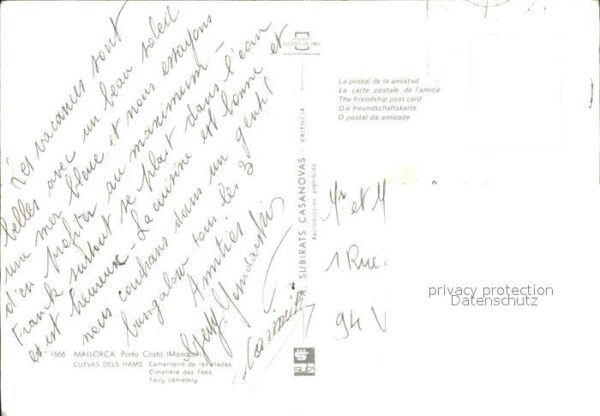 Les vacances sont
belles avec un beau soleil
une mer bleue et nous essayons
d'en profiter au maximum -
Franck surtout se plait dans l'eau
et est heureux - La cuisine est bonne et
nous couchons dans un gentil
bungalow tous les 3
Amitiés
La postal de la amistad
La carte postale de l'amitié
The friendship post card
Die freundschaftskarte
O postal da amizade
A. SUBIRATS CASANOVAS - VALENCIA
Reproduccion prohibida
Mr et M
1 Rue
94 V
privacy protection
Datenschutz
N.° 1666 MALLORCA. Porto Cristo
CUEVAS DELS HAMS. Cementerio de las Hadas.
Cimetière des Fées.
Fairy cemetery.